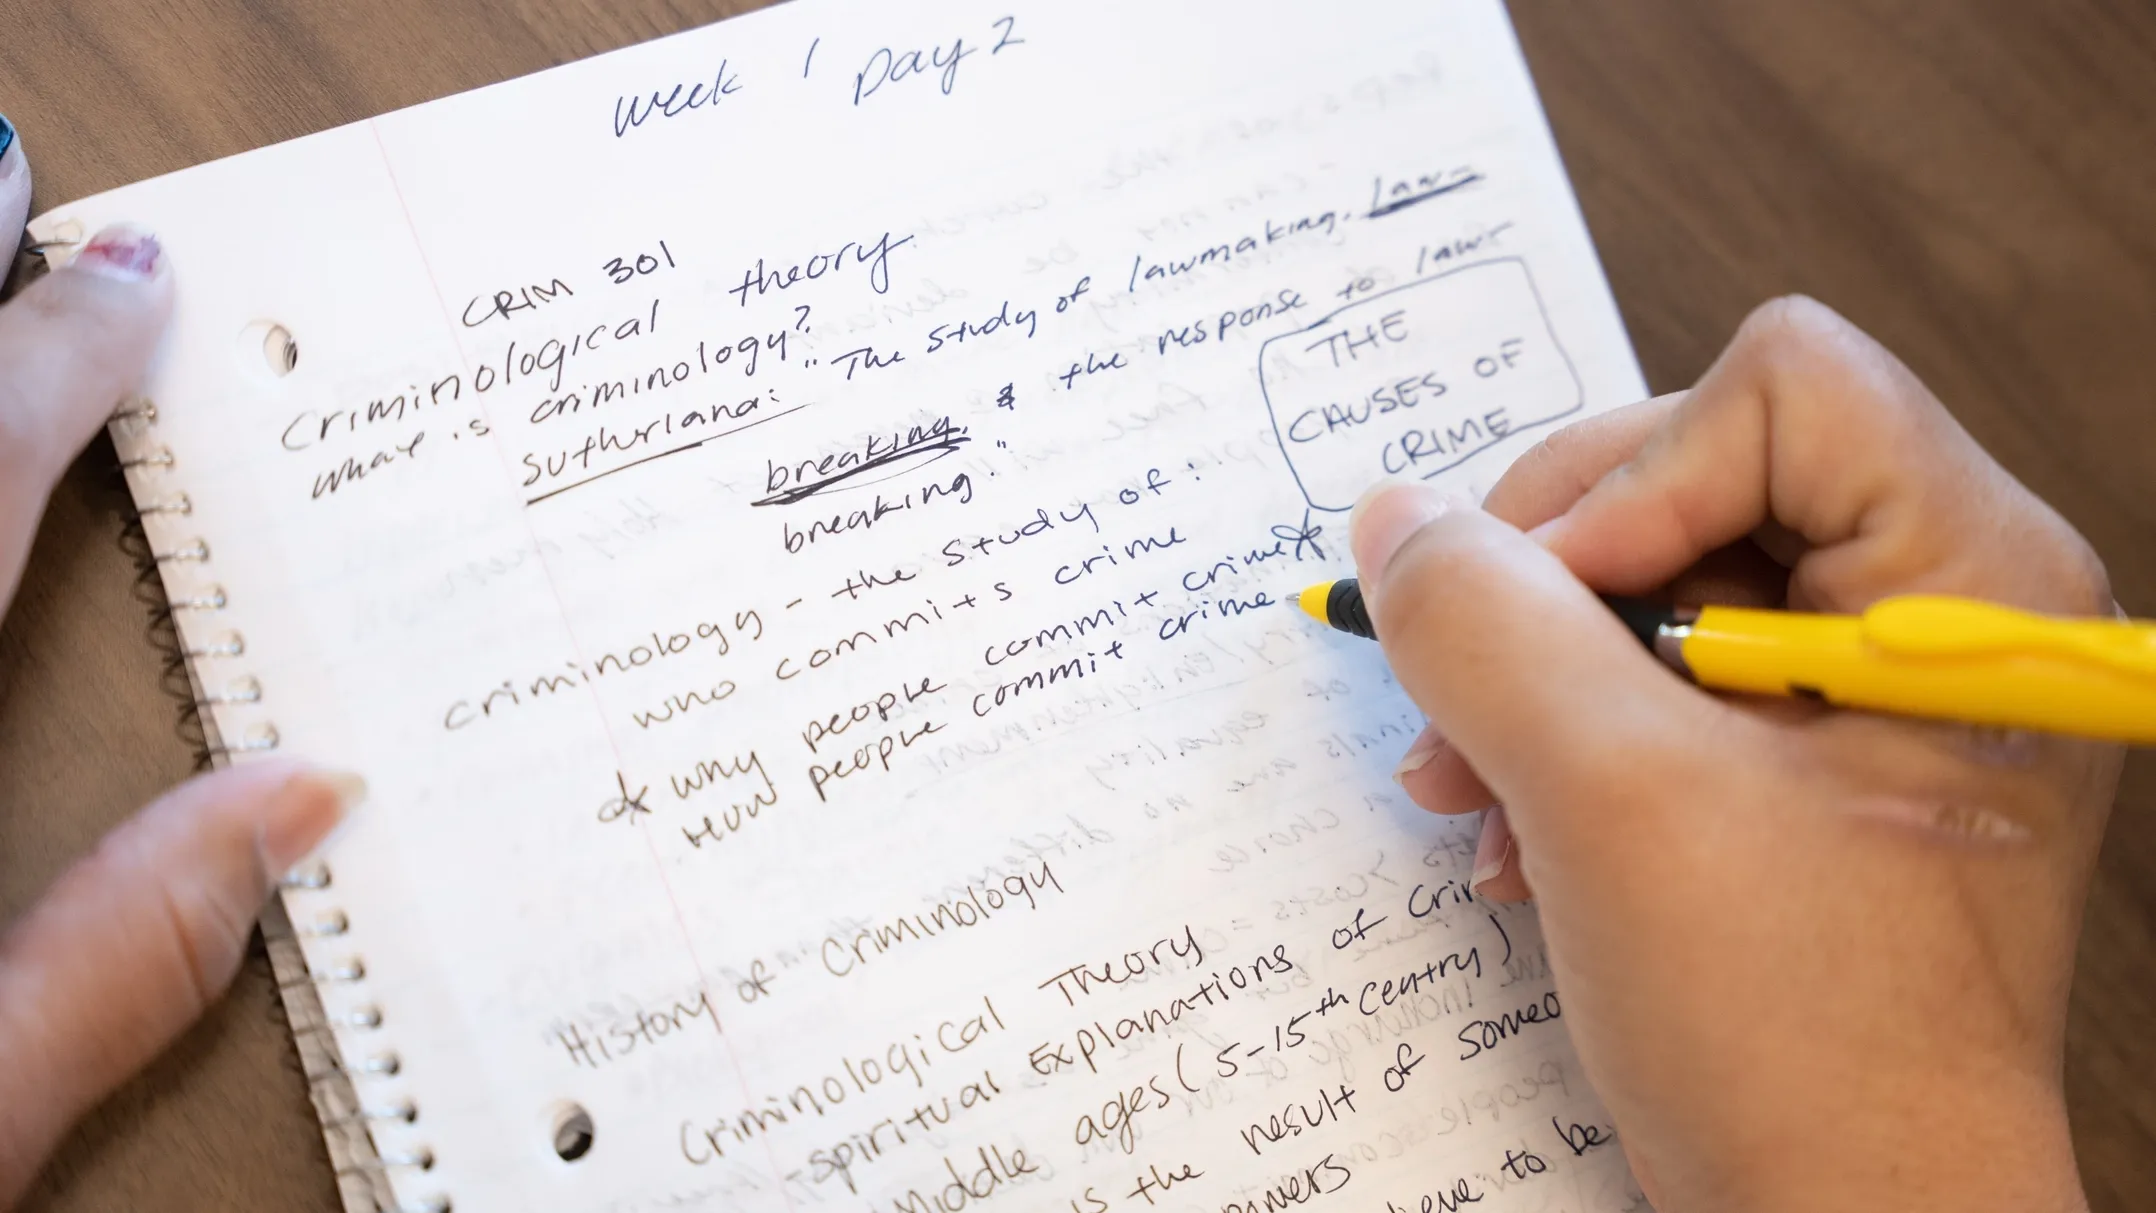 Week 1 Day 2
CRIM 301
Criminological theory.
What is criminology?
Sutherland: "The study of lawmaking, law-
breaking, & the response to law-
breaking."
THE
CAUSES OF
CRIME
criminology - the study of:
who commits crime
* why people commit crime *
How people commit crime
History of Criminology
Criminological Theory
-spiritual Explanations of Crim
Middle ages (5-15th centry)
is the result of someo
to be